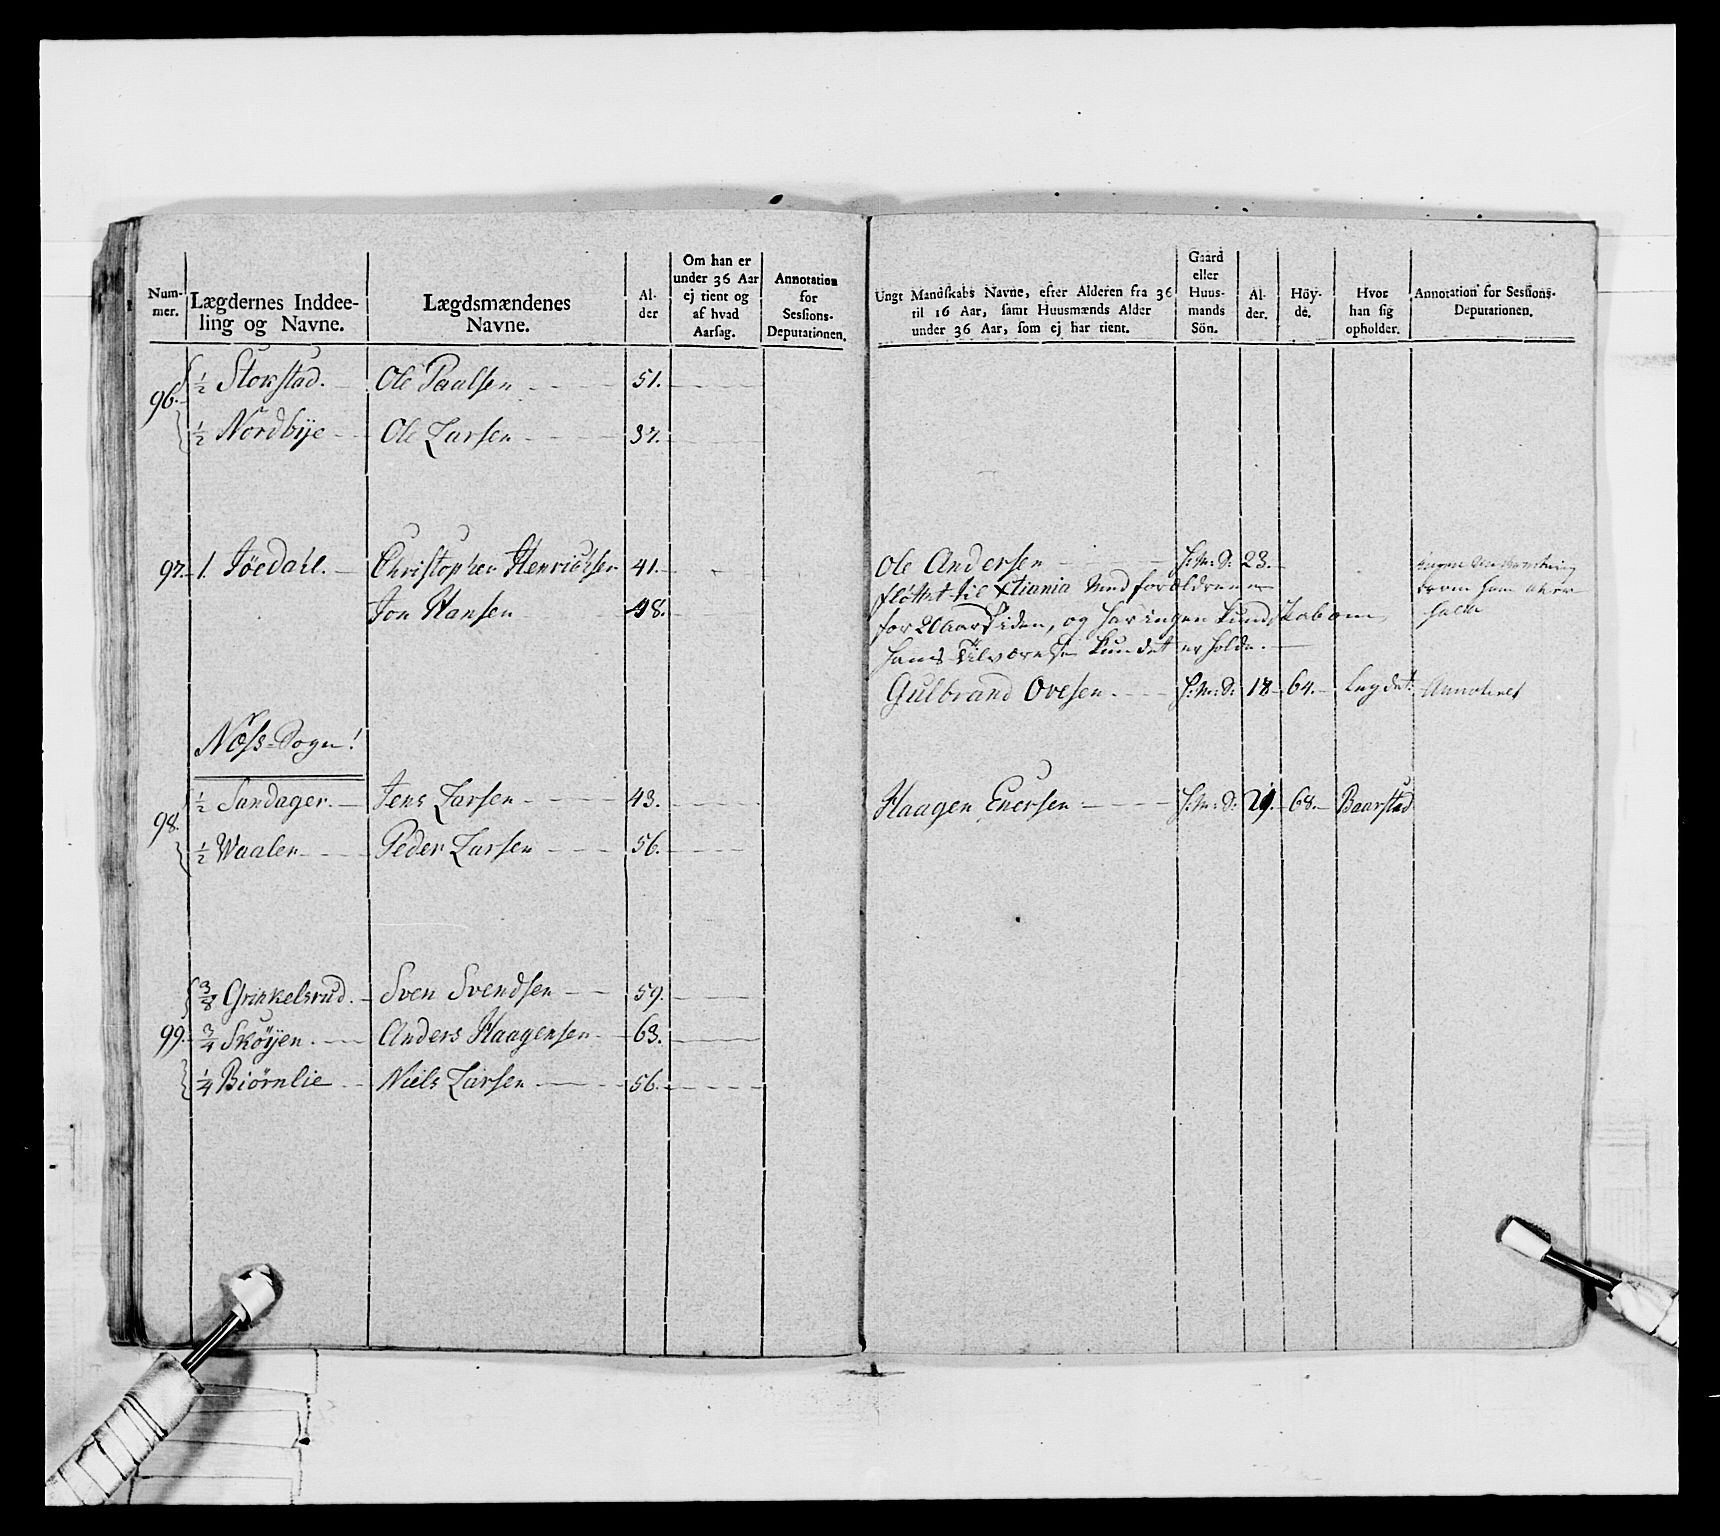 Num-
mer.
Lægdernes Inddee-
ling og Navne.
Lægdsmændenes
Navne.
Al-
der
Om han er
under 36 Aar
ej tient og
af hvad
Aarsag.
Annotation
for
Sessions-
Deputationen.
Ungt Mandskabs Navne, efter Alderen fra 36
til 16 Aar, samt Huusmænds Alder
under 36 Aar, som ej har tient.
Gaard
eller
Huus-
mands
Sön.
Al-
der.
Höy-
de.
Hvor
han sig
opholder.
Annotation for Sessions-
Deputationen.
96. ½ Stokstad. Ole Paulsen 51.
½ Nordbÿe Ole Larsen 37.
97. 1. Jöedahl. Christopher Henrichsen 41. Ole Andersen H:M:S: 23.
fløttet til Xtiania med forældrene
Jon Hansen 48.
for 20 aar siden, og har ingen kundskab om
hans Tilværelse kundet erholde.
Gulbrand Ovesen H:M:S: 18 64. Legdet Annoteret
Næss-Sogn!
98. ½ Sandager Jens Larsen 43. Haagen Enersen H:M:S: 29. 68. Baarstad
½ Waaler Peder Larsen 56.
⅜ Grinkelsrud. Sven Svendsen 59.
99. ¾ Skøÿen. Anders Haagensen 63.
¼ Biørnlie Niels Larsen 56.